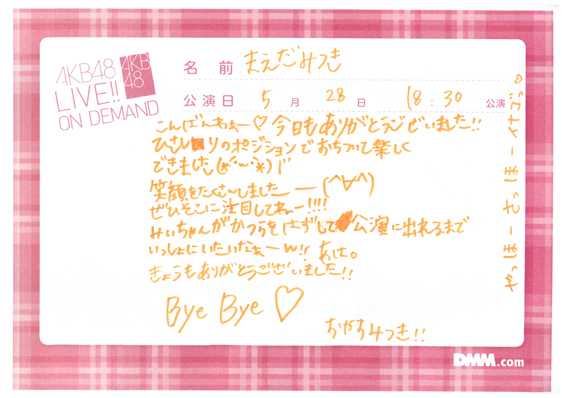 AKB48
LIVE!!
ON DEMAND
AKB
48
名前 まえだみつき
公演日 5月28日 18:30公演
こんばんわぁー♡今日もありがとうございました!!
ひさしりのポジションでおちついて楽しく
できました(*´~`*)
笑顔をたくさんしましたー(^∀^)
ぜひそこに注目してねー!!!!
みぃちゃんがかつらをはずして公演に出れるまで
いっしょにいたいなぁーw!! あは。
きょうもありがとうございました!!
Bye Bye♡
おやすみつき!!
やっほー さっほー
DMM.com